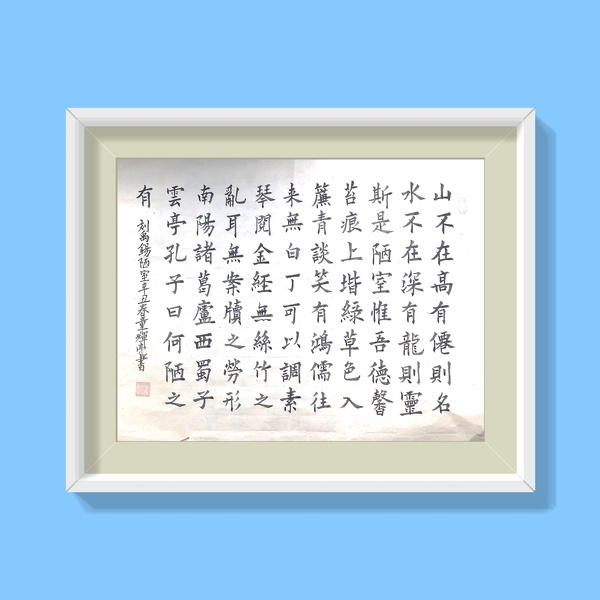 山不在高有僊則名
水不在深有龍則靈
斯是陋室惟吾徳馨
苔痕上堦緑草色入
簾青談笑有鴻儒往
来無白丁可以調素
琴閲金経無絲竹之
亂耳無案牘之勞形
南陽諸葛廬西蜀子
雲亭孔子曰何陋之
有
刘禹錫陋室辛丑春童輝書